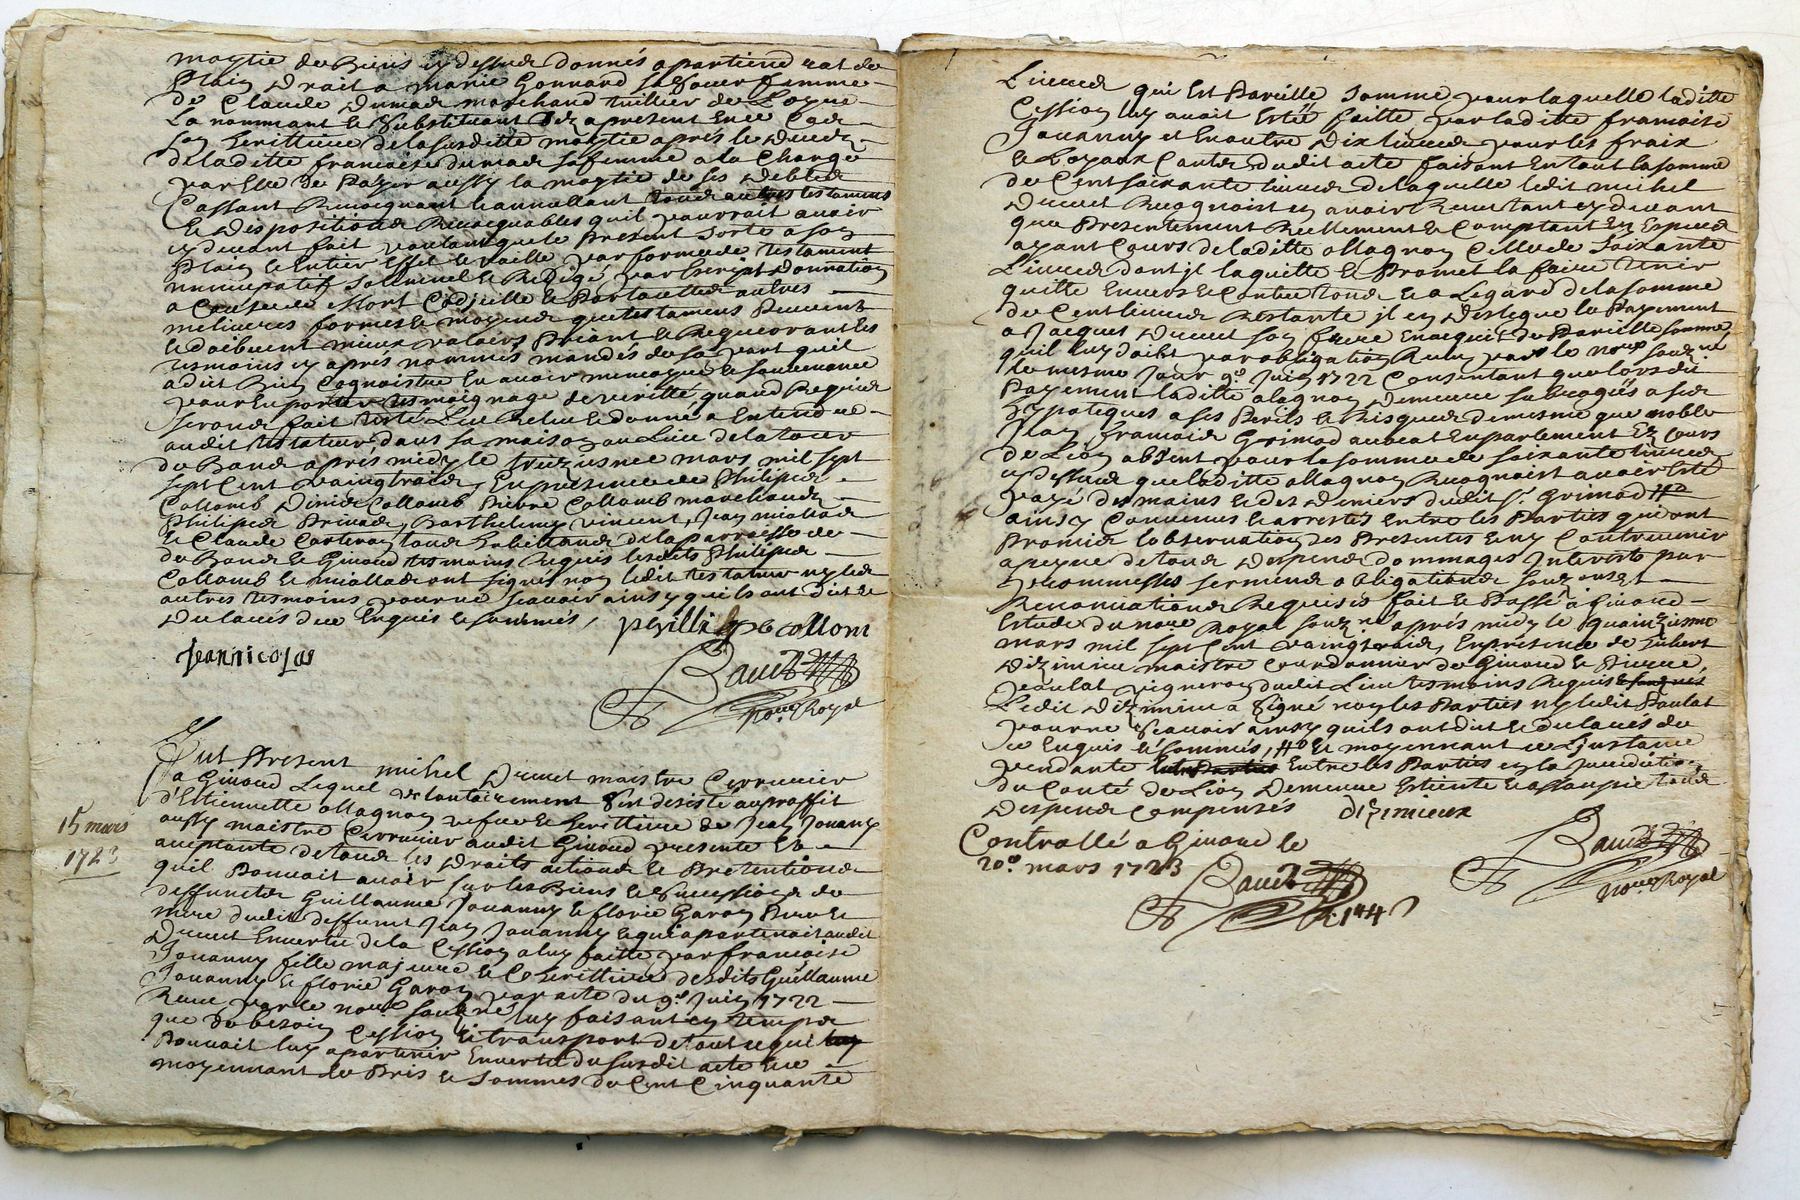 moytie des Biens cy dessus donnés apartiendrat de
Plain Droit a marie Gonnard sa soeur femme
de Claude Dumas marchand tuillier de
La nommant & substituant dez a present en ce Cas
son heritiere de la susditte moytie après le deces
de laditte francoise dumas sa femme a la Charge
par Elle de Payer aussy la moytie de ses debtes
Cassant Revocquant & annullant tous autres testamens
& dispositions Revocquables quil pourroit avoir
cy devant fait voulant que le present sorte a son
Plain & Entier Effet & vaille par forme de testament
nuncupatif sollemnel & Redigé par Escript donnation
a Cause de Mort Codicille & Par toutes autres
melieures formes & moyens que testamens Peuvent
& doibvent mieux valoir Priant & Requerant les
tesmoins cy après nommés mandés de sa part quil
a dit Bien Cognoistre En avoir memoyre & souvenance
pour En porter tesmoignage de verité quand Requis
seront fait Leu Releu & donné a Entendre
audit testateur dans sa maison au Lieu de la tour
du Banc après midy le mars mil sept
sept Cent vaingtrois En presence de Philipe
Collomb Denis Collomb Pierre Collomb marchands
Philipe Privas, Barthelemy vincent, Jean
& Claude tous habittans de la parroisse de
& Givord tesmoins Requis lesdits Philipe
Collomb & ont signés non ledit testateur ny les
autres tesmoins pour ne scavoir ainsy quils ont dit &
declarés de ce Enquis & sommés,
phillipe collom
Jean nicolas
Baud
no.re Royal
15 mars
1723
Fut Present michel Ducret maistre Cerrurier
a Givord Lequel volontairement s'est desisté au proffit
d'Estiennette Allagnon vefve & herittiere de Jean Jouanny
aussy maistre Cerrurier audit Givord presente &
acceptante de tous les Droits actions & Pretentions
quil Pouvoit avoir sur les Biens & successions de
deffuncts Guillaume Jouanny & florie Garon Pere &
mere dudit deffunct Jean Jouanny & qui apartenoit audit
Ducret En vertu de la Cession a luy faitte par francoise
Jouanny fille majeure & Coherittiere desdits Guillaume
Jouanny & florie Garon par acte du 9.e Juin 1722
Receu par le no.re soubz.né luy faisant en temps
que de besoin Cession & transport de tout ce qui
Pouvoit luy apartenir En vertu du susdit acte & ce
moyennant le Pris & sommes de Cent Cinquante
Livres qui Est Pareille somme pour laquelle laditte
Cession luy avoit Esté faitte par laditte francoise
Jouanny et En outre Dix livres pour les fraix
& Loyaux Couts dudit acte faisant En tout la somme
de Cent soixante livres de laquelle ledit michel
Ducret Recognoist en avoir Receu tant cy devant
que Presentement Reellement & Comptant En Especes
ayant Cours de laditte allagnon Celle de soixante
Livres dont jl la quitte & Promet la faire tenir
quitte Envers & Contre tous & a Legard de la somme
de Cent livres Restante jl en deslegue le Payement
a Jacques Ducret son frere En acquit de Pareille somme
quil luy doibt par obligation Receu par le no.re soubz.né
le mesme Jour 9.e Juin 1722 Consentant que lors du
Payement laditte alagnon demeure subrogée a ses
hypoteques a ses Perils & Risques de mesme que noble
Jean francois Grimod avocat En parlement Ez Cours
de Lion absent pour la somme de soixante livres
cy dessus que laditte allagnon Recognoist avoir Esté
payé des mains & des deniers dudit s.r Grimod
ainsy Convenus & arrestés Entre les Parties qui ont
Promis lobservation des Presentes & ny Contrevenir
a peyne de tous despens dommages Interests par
serments obligations
Renonciations Requises fait & Passé a Givord
Estude du no.re Royal soubz.né après midy le quainzieme
mars mil sept Cent vaingtrois, En presence de hubert
Dizimieu maistre Courdonnier de Givord & Pierre
Poulat vigneron dudit Lieu tesmoins Requis
Ledit Dizimieu a signé non les Parties ny ledit Poulat
pour ne scavoir ainsy quils ont dit & declarés de
ce Enquis & sommés, & moyennant ce L'instance
pendante Entre les Parties en la Juridiction
du Conté de Lion Demeure Esteinte & assoupie tous
despens Compensés
dizimieux
Controllé a Givord le
20.e mars 1723
Baud
Baud
no.re Royal